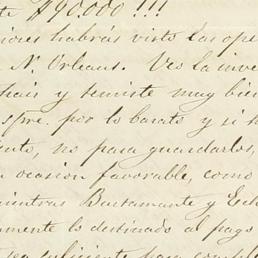 te $90.000 !!!
iores habrás visto las ope
N. Orleans. Ves la inve
hais y temiste muy bien
spre. por lo barato y si h
ento, no para guardarlos,
ocasion favorable, como
ientras Bustamante y Ech
mente lo destinado al pago
sea suficiente para comple